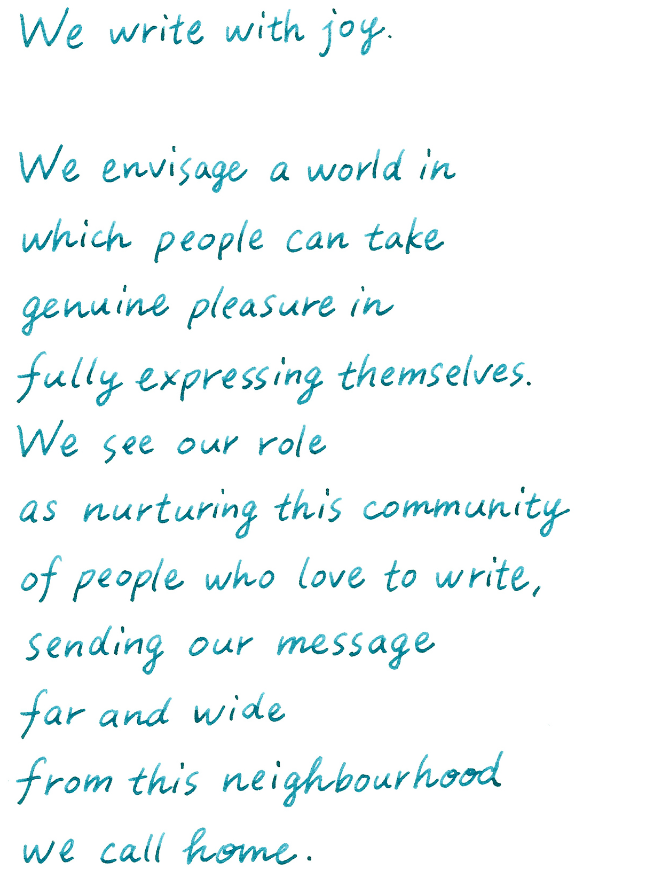 We write with joy.
We envisage a world in
which people can take
genuine pleasure in
fully expressing themselves.
We see our role
as nurturing this community
of people who love to write,
sending our message
far and wide
from this neighbourhood
we call home.